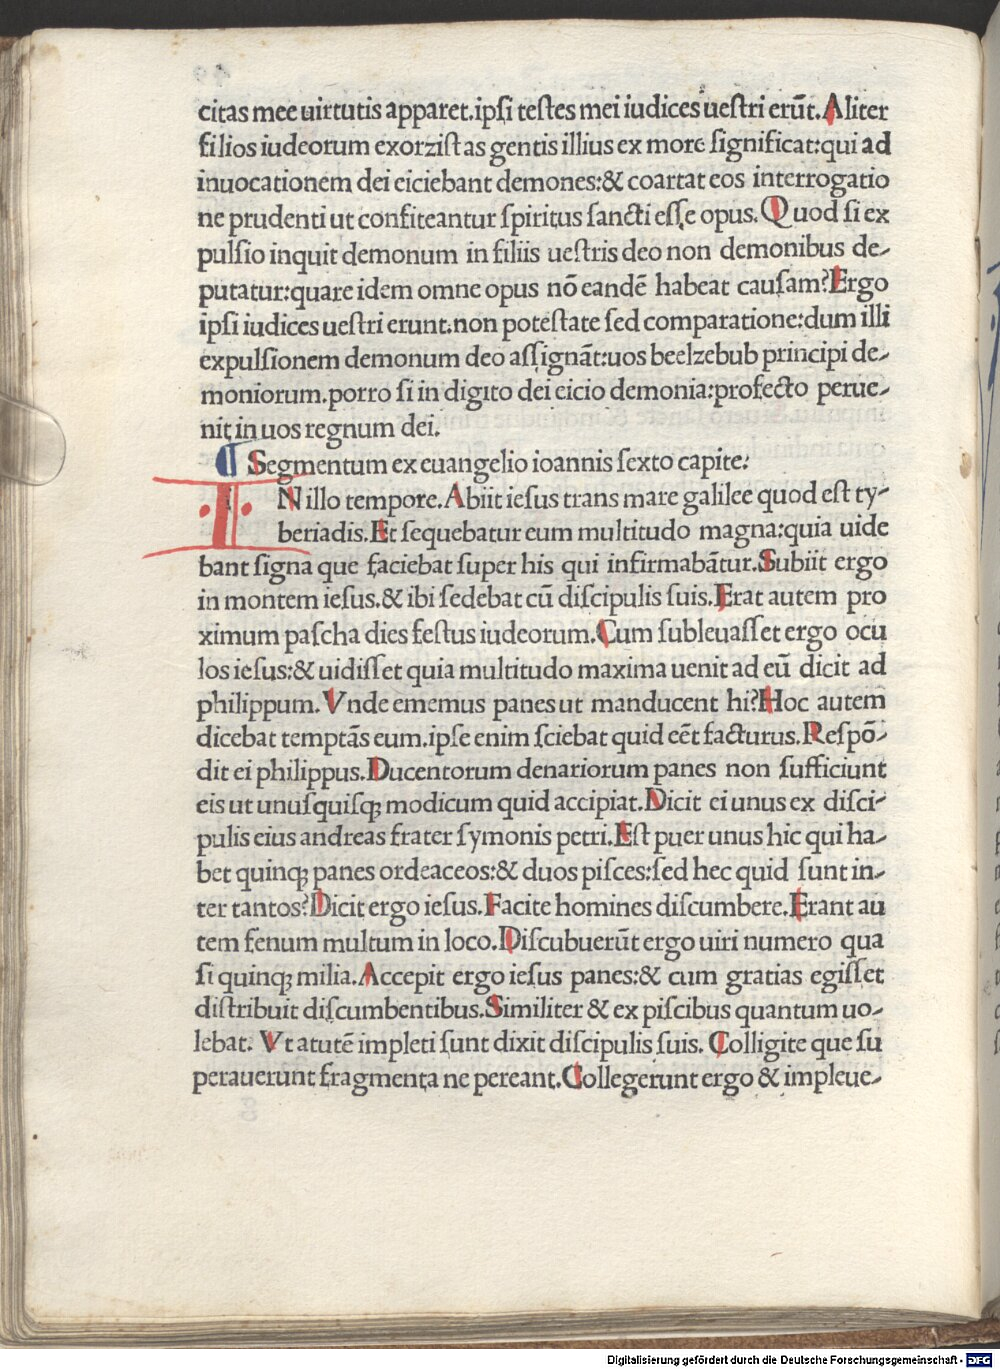 citas mee uirtutis apparet.ipſi teſtes mei iudices ueſtri erūt.Aliter
filios iudeorum exorziſtas gentis illius ex more ſignificat:qui ad
inuocationem dei eiciebant demones:& coartat eos interrogatio
ne prudenti ut confiteantur ſpiritus ſancti eſſe opus.Quod ſi ex
pulſio inquit demonum in filiis ueſtris deo non demonibus de-
putatur:quare idem omne opus nō eandē habeat cauſam?Ergo
ipſi iudices ueſtri erunt.non poteſtate ſed comparatione:dum illi
expulſionem demonum deo aſſignāt:uos beelzebub principi de-
moniorum.porro ſi in digito dei eicio demonia:profecto perue-
nit in uos regnum dei.
¶ Segmentum ex euangelio ioannis ſexto capite:
IN illo tempore.Abiit ieſus trans mare galilee quod eſt ty-
beriadis.Et ſequebatur eum multitudo magna:quia uide
bant ſigna que faciebat ſuper his qui infirmabātur.Subiit ergo
in montem ieſus.& ibi ſedebat cū diſcipulis ſuis.Erat autem pro
ximum paſcha dies feſtus iudeorum.Cum ſubleuaſſet ergo ocu
los ieſus:& uidiſſet quia multitudo maxima uenit ad eū dicit ad
philippum.Vnde ememus panes ut manducent hi?Hoc autem
dicebat temptās eum.ipſe enim ſciebat quid eēt facturus.Reſpō-
dit ei philippus.Ducentorum denariorum panes non ſufficiunt
eis ut unuſquiſqꝫ modicum quid accipiat.Dicit ei unus ex diſci-
pulis eius andreas frater ſymonis petri.Eſt puer unus hic qui ha-
bet quinqꝫ panes ordeaceos:& duos piſces:ſed hec quid ſunt in-
ter tantos?Dicit ergo ieſus.Facite homines diſcumbere.Erant au
tem fenum multum in loco.Diſcubuerūt ergo uiri numero qua
ſi quinqꝫ milia.Accepit ergo ieſus panes:& cum gratias egiſſet
diſtribuit diſcumbentibus.Similiter & ex piſcibus quantum uo-
lebat. Vt atutē impleti ſunt dixit diſcipulis ſuis. Colligite que ſu
perauerunt fragmenta ne pereant.Collegerunt ergo & impleue-
Digitalisierung gefördert durch die Deutsche Forschungsgemeinschaft - DFG